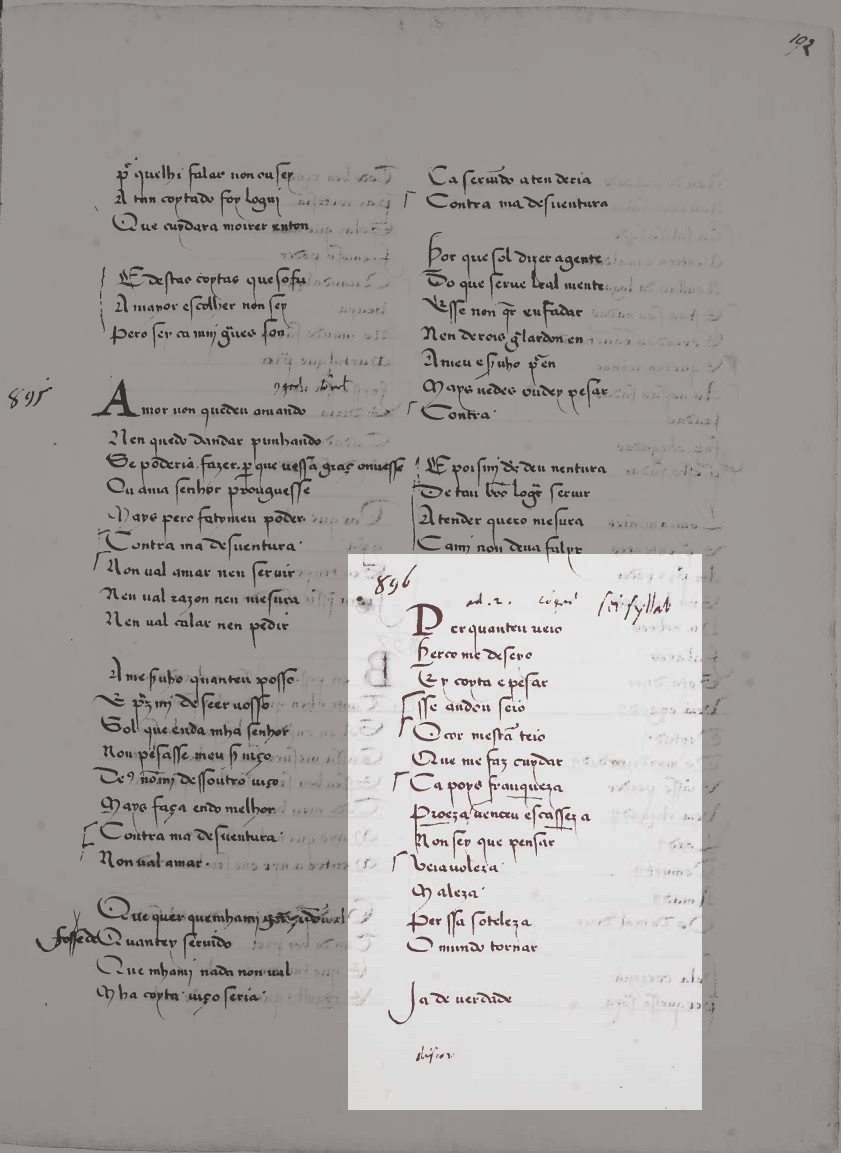 192
p̃ quelhi falar non ousey
A tan coytado foy logui
Que cuydara moirer enton
E destas coytas que sofri
A mayor escolher non sey
Pero sey ca mui g̃ues son
895
Amor non quedeu amando
Nen quedo dandar punhando
Se poderia fazer per que uessa graç ouuesse
Ou a ma senhor prouguesse
Mays pero faty meu poder
Contra ma desuentura
Non val amar nen seruir
Nen ual razon nen mesura
Nen ual calar nen pedir
A me suho quanteu posso
E pz mi de seer uosso
Sol que enda mha senhor
Non pesasse meu s̃ uiço
De9 nõmi dessoutro uiço
Mays faça endo melhor
Contra ma desuentura
Non ual amar
Que quer que mhami
fosse de Quantey seruido
Que mhami nada non ual
Mha coyta uiço seria
Ca seruĩdo atenderia
Contra ma desuentura
Por que sol dizer a gente
Do que serue leal mente
Esse non q̃r enfadar
Nen derois g̃lardon en
A meu e suho p̃ en
Mays uedes ondey pesar
Contra
E poi smi de deu uentura
De tan bõo logr seruir
Atender quero mesura
Cami non deua falyr
896
Per quanteu ueio
Perco me deseio
Ey coyta e pesar
sse andou seio
O cor mestã teio
Que me faz cuydar
Ca poys franqueza
Proeza venceu escasseza
Non sey que pensar
Veia uoleza
Maleza
Per ssa soteleza
O mundo tornar
Ja de uerdade